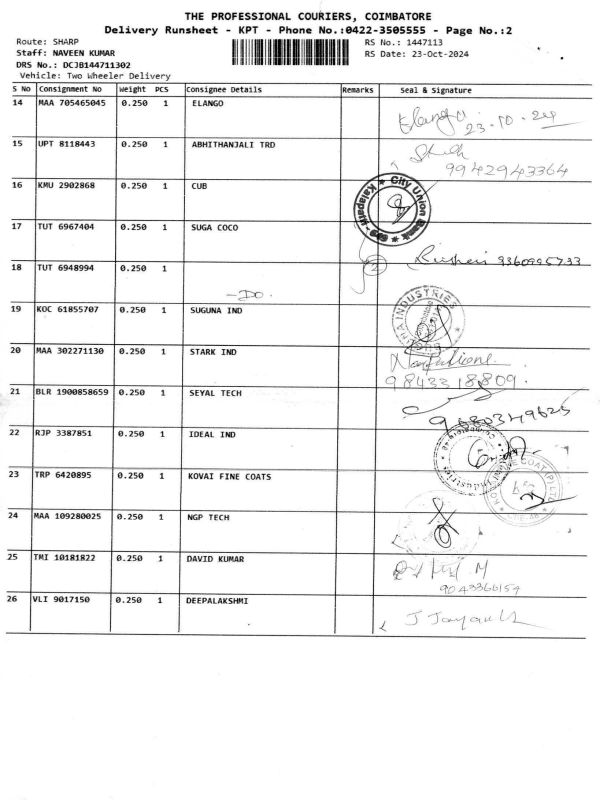 THE PROFESSIONAL COURIERS, COIMBATORE
Delivery Runsheet - KPT - Phone No.:0422-3505555 - Page No.:2
Route: SHARP RS No.: 1447113
Staff: NAVEEN KUMAR RS Date: 23-Oct-2024
DRS No.: DCJB144711302
Vehicle: Two Wheeler Delivery
S No Consignment No Weight PCS Consignee Details Remarks Seal & Signature
14 MAA 705465045 0.250 1 ELANGO
Elango
23.10.24
15 UPT 8118443 0.250 1 ABHITHANJALI TRD
9942943364
16 KMU 2902868 0.250 1 CUB
City Union Bank
17 TUT 6967404 0.250 1 SUGA COCO
9360995733
18 TUT 6948994 0.250 1
2
-DO.
19 KOC 61855707 0.250 1 SUGUNA IND
INDUSTRIES
20 MAA 302271130 0.250 1 STARK IND
9843318809.
21 BLR 1900858659 0.250 1 SEYAL TECH
9680349625
22 RJP 3387851 0.250 1 IDEAL IND
23 TRP 6420895 0.250 1 KOVAI FINE COATS
24 MAA 109280025 0.250 1 NGP TECH
25 TMI 10181822 0.250 1 DAVID KUMAR
9043366154
26 VLI 9017150 0.250 1 DEEPALAKSHMI